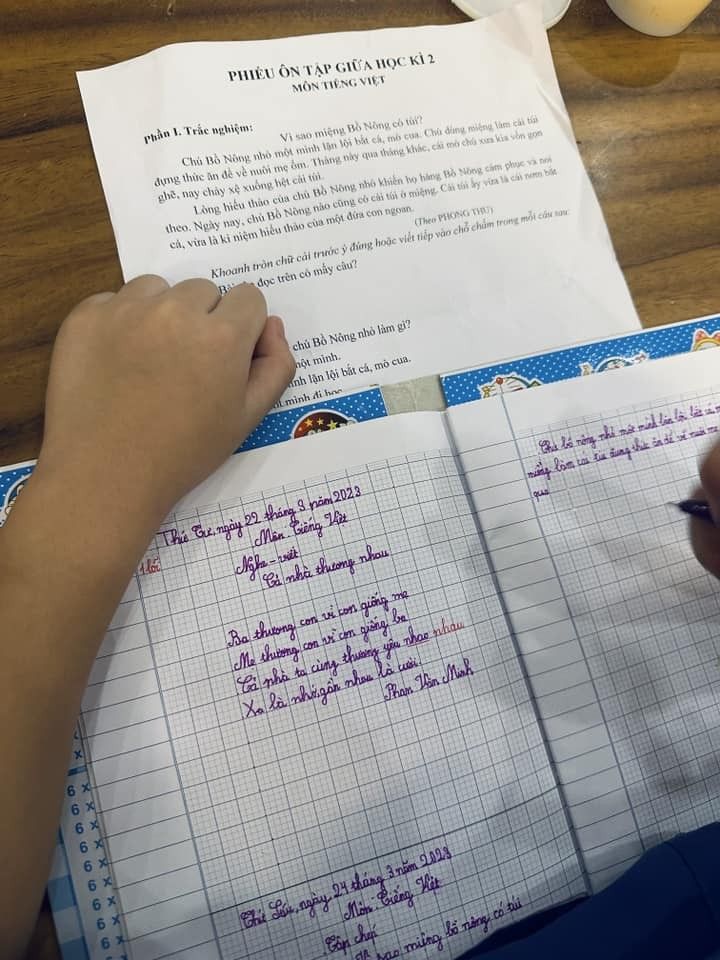 PHIẾU ÔN TẬP GIỮA HỌC KÌ 2
MÔN TIẾNG VIỆT
Phần I. Trắc nghiệm:
Vì sao miệng Bồ Nông có túi?
Chú Bồ Nông nhỏ một mình lặn lội bắt cá, mò cua. Chú dùng miệng làm cái túi
đựng thức ăn để về nuôi mẹ ốm. Tháng này qua tháng khác, cái mỏ chú xưa kia vốn gọn
ghẽ, nay chảy xệ xuống hệt cái túi.
Lòng hiếu thảo của chú Bồ Nông nhỏ khiến họ hàng Bồ Nông cảm phục và noi
theo. Ngày nay, chú Bồ Nông nào cũng có cái túi ở miệng. Cái túi ấy vừa là cái nơm bắt
cá, vừa là kỉ niệm hiếu thảo của một đứa con ngoan.
(Theo PHONG THU)
Khoanh tròn chữ cái trước ý đúng hoặc viết tiếp vào chỗ chấm trong mỗi câu sau:
đọc trên có mấy câu?
chú Bồ Nông nhỏ làm gì?
một mình.
mình lặn lội bắt cá, mò cua.
mình đi học
Thứ Tư, ngày 22 tháng 3 năm 2023
Môn: Tiếng Việt
1 lỗi
Nghe - viết
Cả nhà thương nhau
Ba thương con vì con giống mẹ
Mẹ thương con vì con giống ba
Cả nhà ta cùng thương yêu nhao nhau
Xa là nhớ, gần nhau là cười.
Phan Văn Minh
Thứ Sáu, ngày 24 tháng 3 năm 2023
Môn: Tiếng Việt
Tập chép
sao miệng bồ nông có túi
Chú bồ nông nhỏ một mình lặn lội bắt cá
miệng làm cái túi đựng thức ăn để về nuôi mẹ
qua
6 x
6 x
6 x
6 x
6 x
6 x
6 x
6 x
6 x